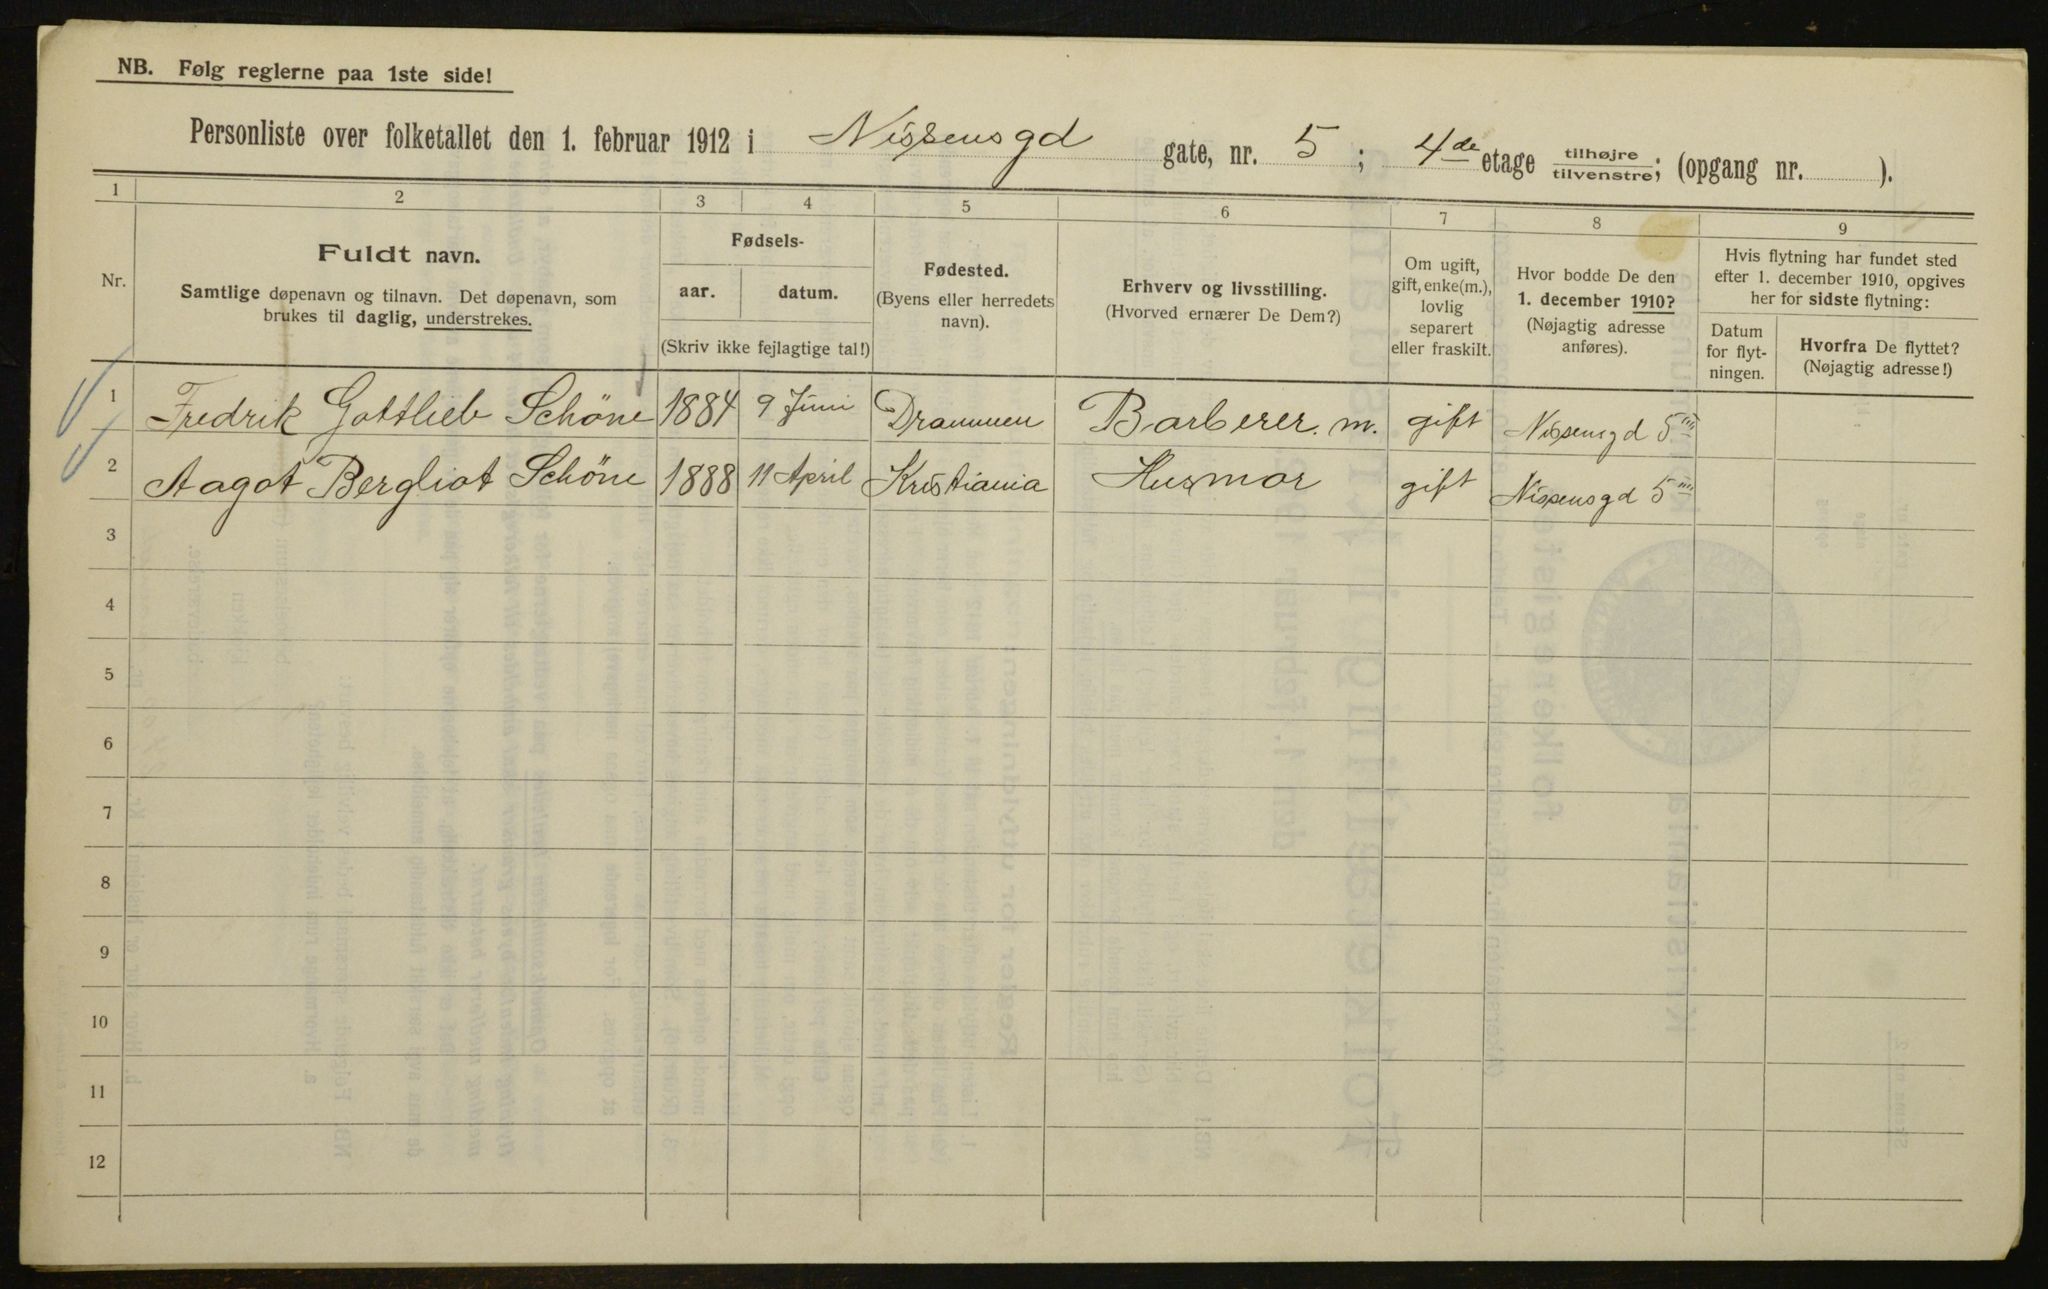 NB. Følg reglerne paa 1ste side!
Personliste over folketallet den 1. februar 1912 i Nissensgd gate, nr. 5 ; 4de etage tilhøjre tilvenstre; (opgang nr. ).
1 2 3 4 5 6 7 8 9
Nr.
Fuldt navn.
Samtlige døpenavn og tilnavn. Det døpenavn, som
brukes til daglig, understrekes.
Fødsels-
aar. datum.
(Skriv ikke fejlagtige tal!)
Fødested.
(Byens eller herredets
navn).
Erhverv og livsstilling.
(Hvorved ernærer De Dem?)
Om ugift,
gift, enke(m.),
lovlig
separert
eller fraskilt.
Hvor bodde De den
1. december 1910?
(Nøjagtig adresse
anføres).
Hvis flytning har fundet sted
efter 1. december 1910, opgives
her for sidste flytning:
Datum
for flyt-
ningen.
Hvorfra De flyttet?
(Nøjagtig adresse!)
1 Fredrik Gottlieb Schöne 1884 9 Juni Drammen Barberer. m. gift Nissensgd 5 IIII
2 Aagot Bergliot Schöne 1888 11 April Kristiania Husmor gift Nissensgd 5 IIII
3
4
5
6
7
8
9
10
11
12